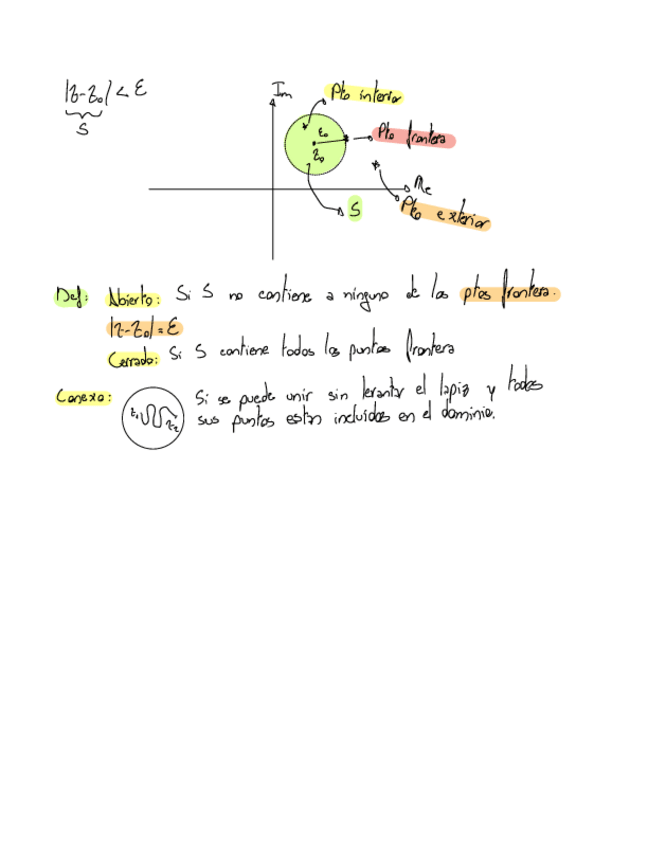 |z-z₀| < ε
S
Im
Pto interior
ε₀
Pto frontera
z₀
Re
S
Pto exterior
Def: Abierto: Si S no contiene a ninguno de los ptos frontera.
|z-z₀| = ε
Cerrado: Si S contiene todos los puntos frontera
Conexo: Si se puede unir sin levantar el lapiz y todos
z₁ z₂ sus puntos estan incluidos en el dominio.